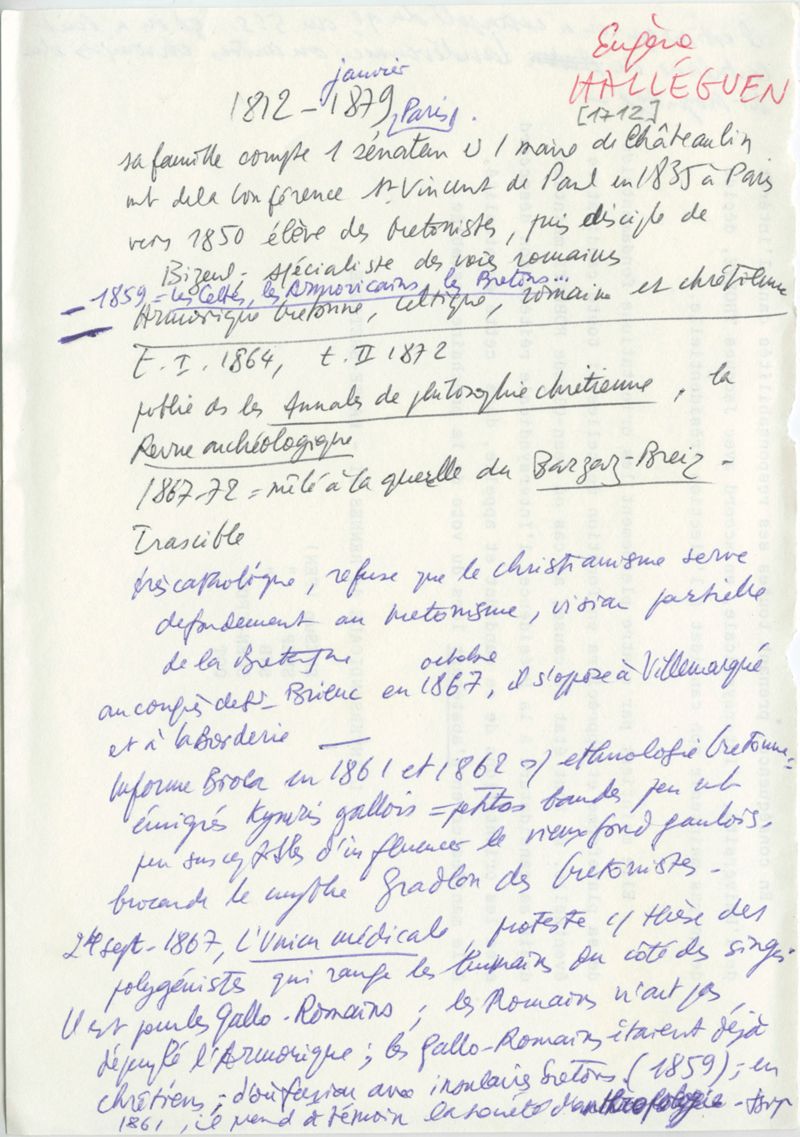 Eugène
HALLÉGUEN
[1712]
janvier
1812 - 1879 (Paris).
sa famille compte 1 sénateur et 1 maire de Châteaulin
mt de la Conférence St-Vincent de Paul en 1835 à Paris
vers 1850 élève des bretonistes, puis disciple de
Bizeul - spécialiste des voies romaines
- 1859 = les Celtes, les Armoricains, les Bretons...
Armorique bretonne, celtique, romaine et chrétienne
t. I. 1864, t. II 1872
publie ds les Annales de philosophie chrétienne, la
Revue archéologique
1867-72 = mêlé à la querelle du Barzaz-Breiz -
Irascible
très catholique, refuse que le christianisme serve
de fondement au bretonisme, vision partielle
de la Bretagne
octobre
au congrès de St-Brieuc en 1867, il s'oppose à Villemarqué
et à la Borderie —
Informe Broca en 1861 et 1862 => ethnologie bretonne =
émigrés Kymris gallois = petites bandes peu nb
peu susceptibles d'influencer le vieux fond gaulois.
brocarde le mythe Gradlon des bretonistes -
24 sept - 1867, L'Union médicale, proteste c/ thèse des
polygénistes qui range les humains du côté des singes
Il est pour les Gallo-Romains ; les Romains n'ont pas
dépeuplé l'Armorique ; les Gallo-Romains étaient déjà
chrétiens ; d'où fusion avec insulaires bretons (1859) ; en
1861, il prend à témoin la société d'anthropologie -